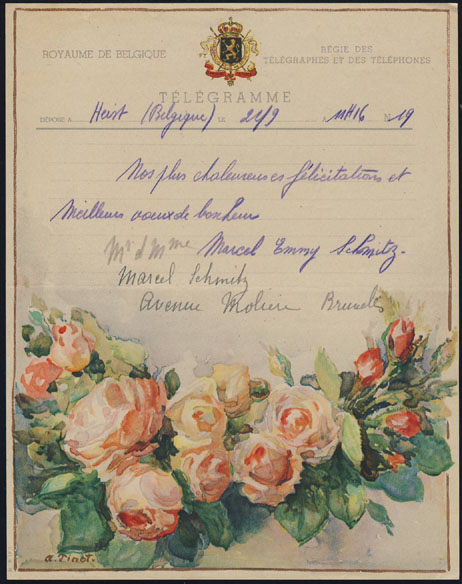 ROYAUME DE BELGIQUE
RÉGIE DES
TÉLÉGRAPHES ET DES TÉLÉPHONES
TÉLÉGRAMME
DÉPOSÉ A Heist (Belgique) LE 21/9 11H16 19
Nos plus chaleureuses félicitations et
Meilleurs voeux de bonheur
Mr et Mme Marcel Emmy Schmitz.
Marcel Schmitz
Avenue Molière Bruxelles
A. Pinot.